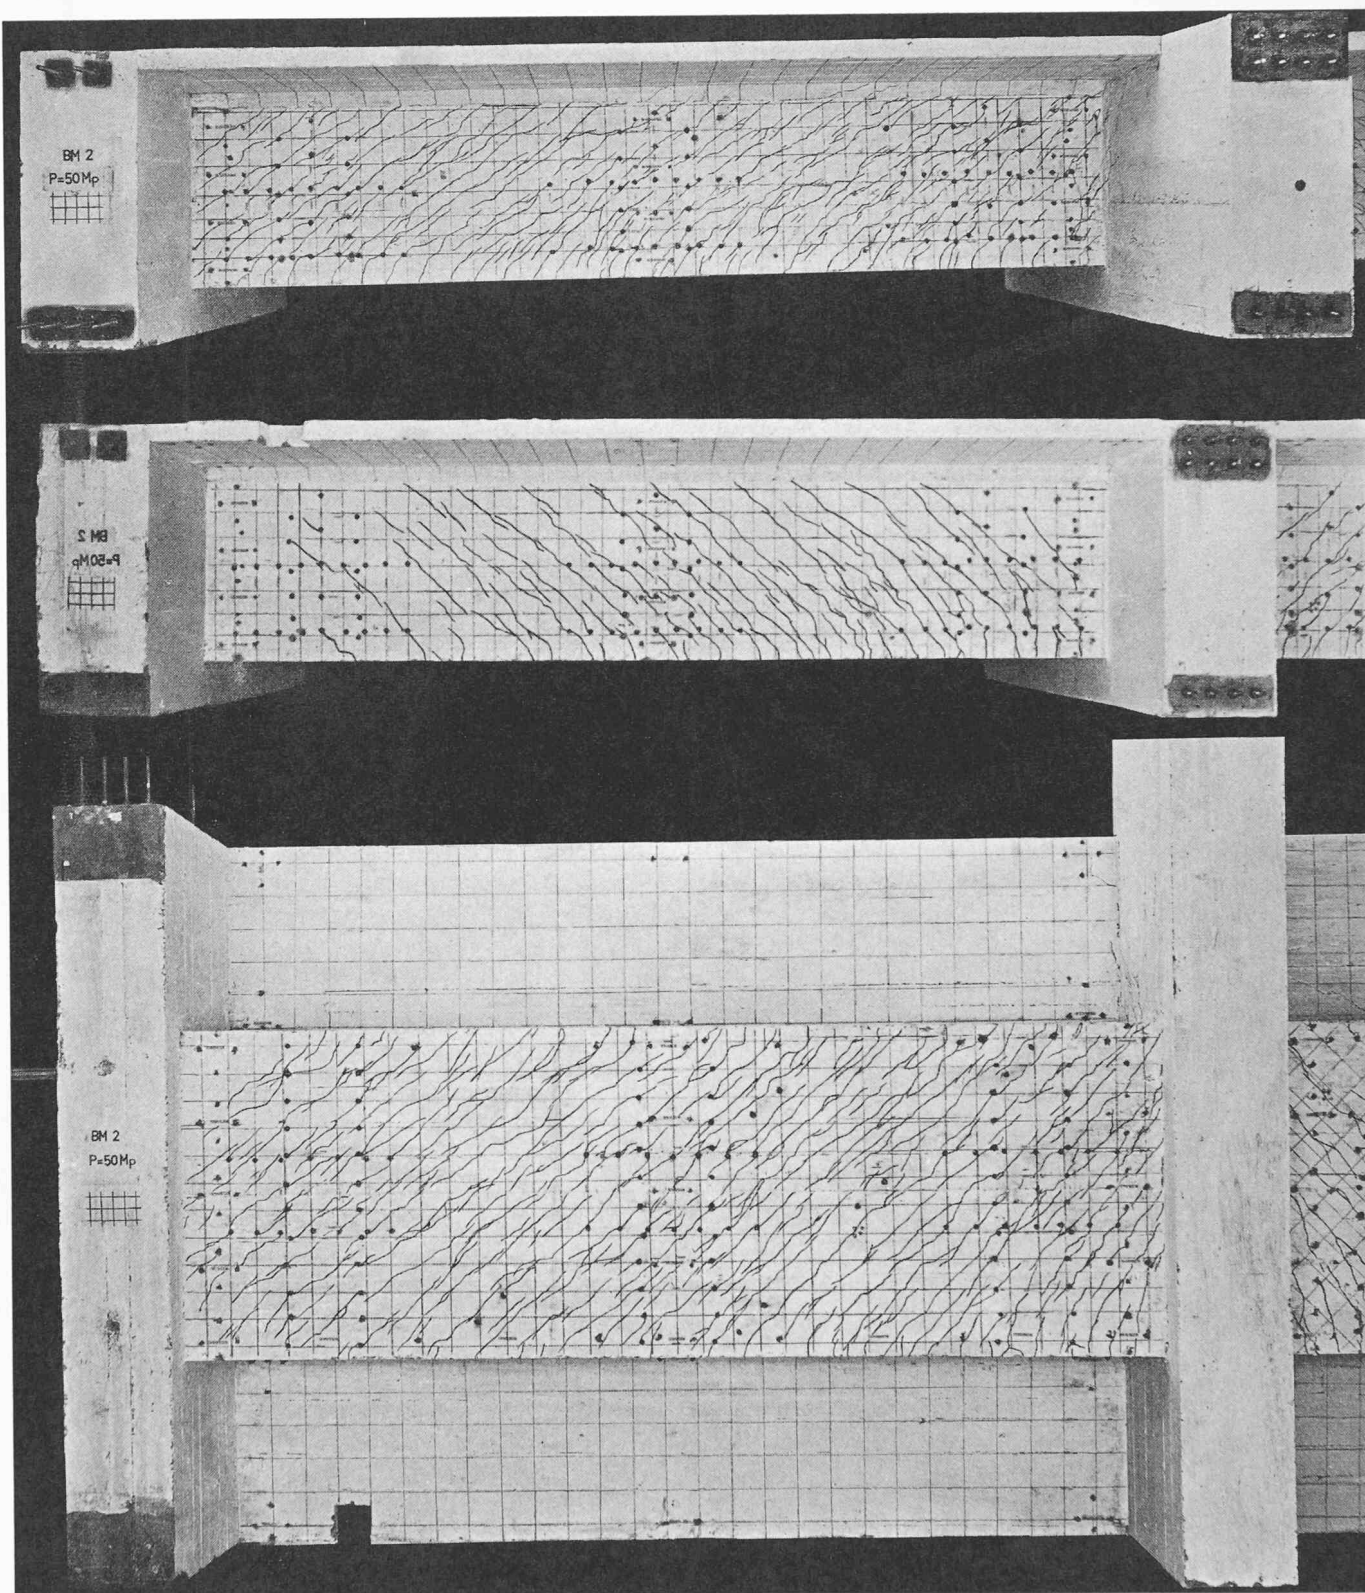 BM 2
P=50Mp
BM 2
P=50Mp
BM 2
P=50Mp